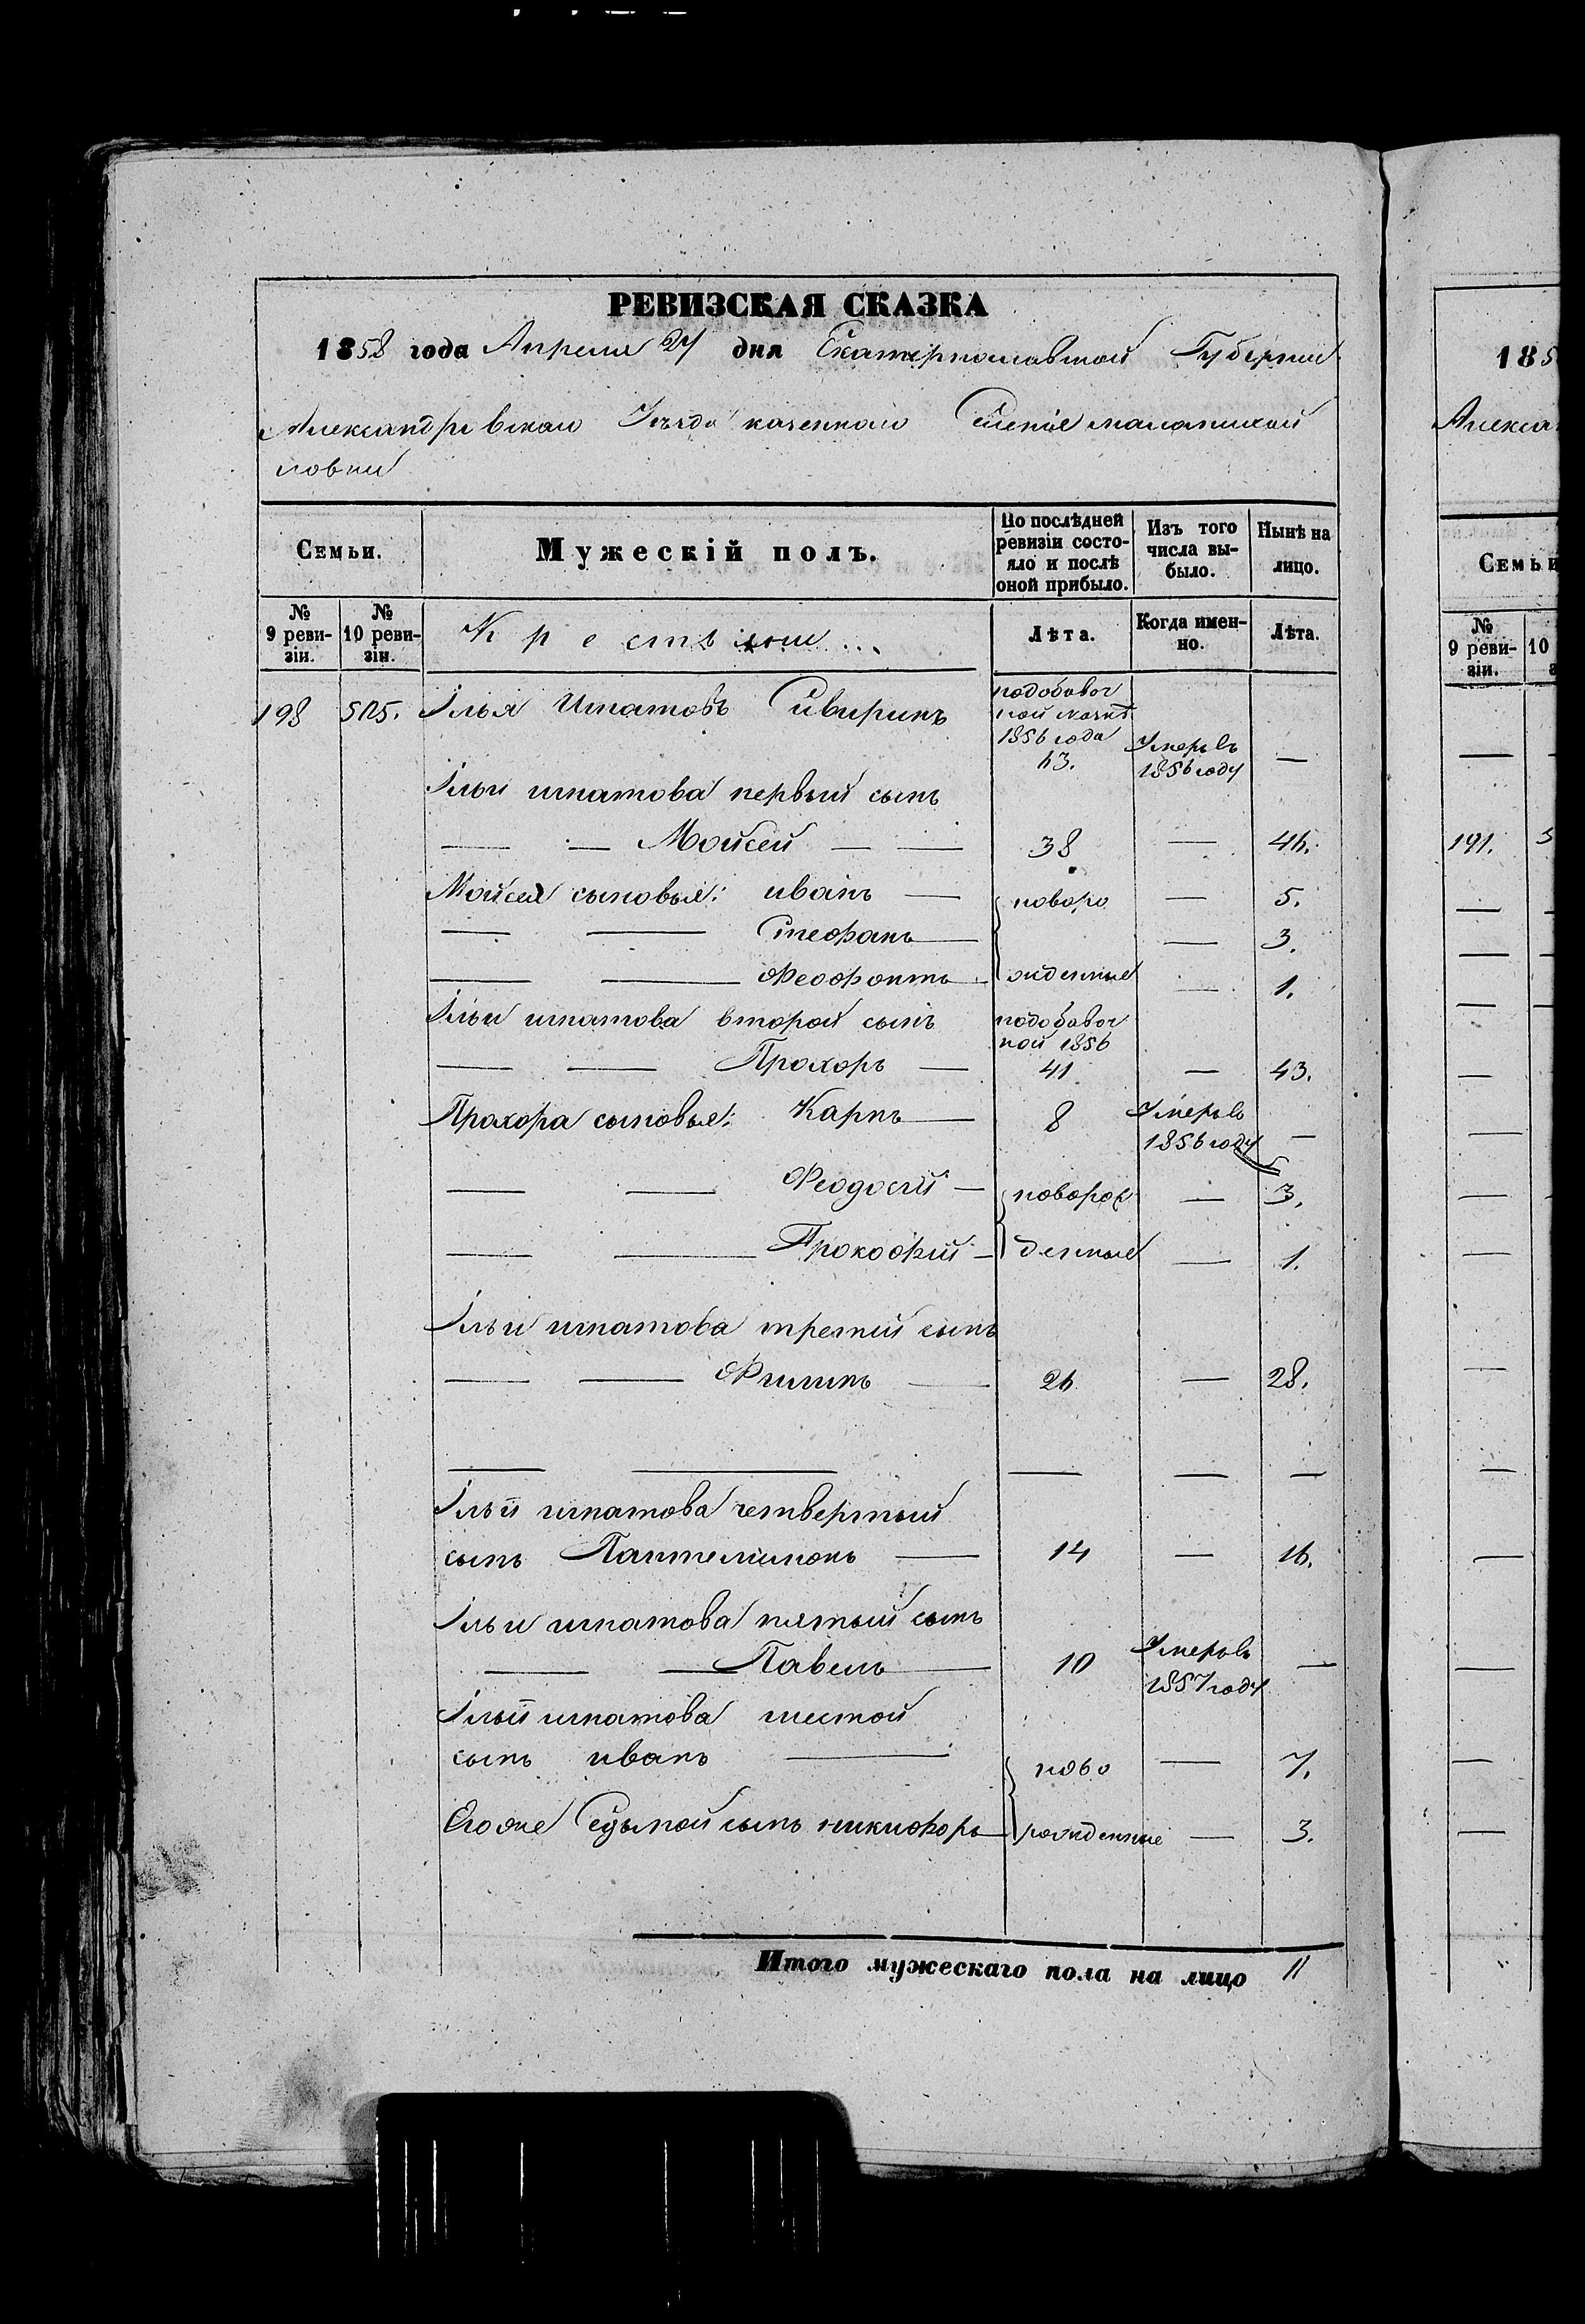 РЕВИЗСКАЯ СКАЗКА
1858 года Апреля 27 дня Екатеринославской Губернии
Александровскаго Уѣзда казеннаго Селенія
ловки
Семьи.
Мужескій полъ.
По послѣдней ревизіи состо-
яло и послѣ оной прибыло.
Изъ того числа вы-
было.
Нынѣ на лицо.
№ 9 реви-
зіи.
№ 10 реви-
зіи.
Крестьяне...
Лѣта.
Когда имен-
но.
Лѣта.
198
Илья Игнатовъ Сиверинъ
подобавоч
ной
1856 года
Умеръ въ
1856 году
—
Ильи игнатова первый сынъ
— — Мойсей — — 38 — 46.
Мойсея сыновья: иванъ — новоро — 5.
— — Стефанъ — — 3.
— — Феофонтъ — жденные — 1.
Ильи игнатова второй сынъ подобавоч
ной 1856
— — Прохоръ — 41 — 43.
Прохора сыновья: Карпъ — 8 Умеръ въ
1856 году —
— — Феодосій — новорож — 3.
— — Прокофій — денные — 1.
Ильи игнатова третій сынъ
— — Филипъ — 26 — 28.
— — — — —
Ильи игнатова четвертый
сынъ Пантелимонъ — 14 — 16.
Ильи игнатова пятый сынъ
— — Павелъ — 10 Умеръ въ —
1857 году
Ильи игнатова шестой
сынъ иванъ — ново — 7.
Егоже Седьмой сынъ никифоръ — рожденные — 3.
Итого мужескаго пола на лицо 11
185
Алекса
Семьи
№ 9 реви-
зіи.
10
191.